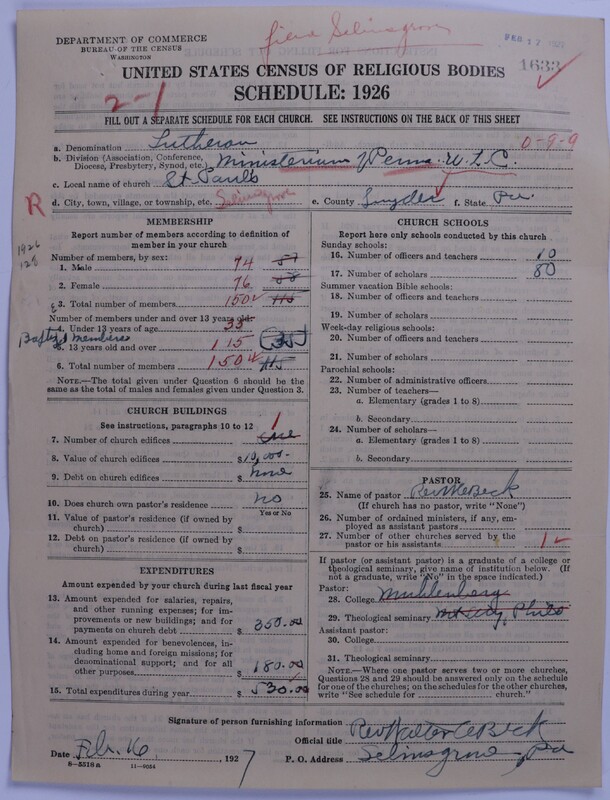 DEPARTMENT OF COMMERCE
BUREAU OF THE CENSUS
WASHINGTON
Selinsgrove
FEB 17 1927
1633
UNITED STATES CENSUS OF RELIGIOUS BODIES
SCHEDULE: 1926
2-1
FILL OUT A SEPARATE SCHEDULE FOR EACH CHURCH. SEE INSTRUCTIONS ON THE BACK OF THIS SHEET
a. Denomination Lutheran
0-9-9
b. Division (Association, Conference, Diocese, Presbytery, Synod, etc.) Ministerium of Penna. U.L.C.
c. Local name of church St Pauls
R
d. City, town, village, or township, etc. Selinsgrove e. County Snyder f. State Pa
MEMBERSHIP
Report number of members according to definition of
member in your church
1926
128
Number of members, by sex:
1. Male 74 57
2. Female 76 58
3. Total number of members 150 115
Number of members under and over 13 years old:
4. Under 13 years of age 35
Baptized Members
5. 13 years old and over 115 (35)
6. Total number of members 150 115
NOTE.—The total given under Question 6 should be
the same as the total of males and females given under Question 3.
CHURCH BUILDINGS
See instructions, paragraphs 10 to 12
7. Number of church edifices One 1
8. Value of church edifices $10,000.
9. Debt on church edifices $ None
10. Does church own pastor's residence? No
Yes or No
11. Value of pastor's residence (if owned by
church) $
12. Debt on pastor's residence (if owned by
church) $
EXPENDITURES
Amount expended by your church during last fiscal year
13. Amount expended for salaries, repairs,
and other running expenses; for im-
provements or new buildings; and for
payments on church debt $ 350.00
14. Amount expended for benevolences, in-
cluding home and foreign missions; for
denominational support; and for all
other purposes $ 180.00
15. Total expenditures during year $ 530.00
CHURCH SCHOOLS
Report here only schools conducted by this church
Sunday schools:
16. Number of officers and teachers 10
17. Number of scholars 80
Summer vacation Bible schools:
18. Number of officers and teachers
19. Number of scholars
Week-day religious schools:
20. Number of officers and teachers
21. Number of scholars
Parochial schools:
22. Number of administrative officers
23. Number of teachers—
a. Elementary (grades 1 to 8)
b. Secondary
24. Number of scholars—
a. Elementary (grades 1 to 8)
b. Secondary
PASTOR
25. Name of pastor Rev W C Beck
(If church has no pastor, write "None")
26. Number of ordained ministers, if any, em-
ployed as assistant pastors
27. Number of other churches served by the
pastor or his assistants 1
If pastor (or assistant pastor) is a graduate of a college or
theological seminary, give name of institution below. (If
not a graduate, write "No" in the space indicated.)
Pastor:
28. College Muhlenberg
29. Theological seminary Mt Airy, Phila
Assistant pastor:
30. College
31. Theological seminary
NOTE.—Where one pastor serves two or more churches,
Questions 28 and 29 should be answered only on the schedule
for one of the churches; on the schedules for the other churches,
write "See schedule for church."
Signature of person furnishing information Rev Walter C Beck
Official title
Date Feb. 16, 1927 P. O. Address Selinsgrove, Pa
8-5518 a 11-9054